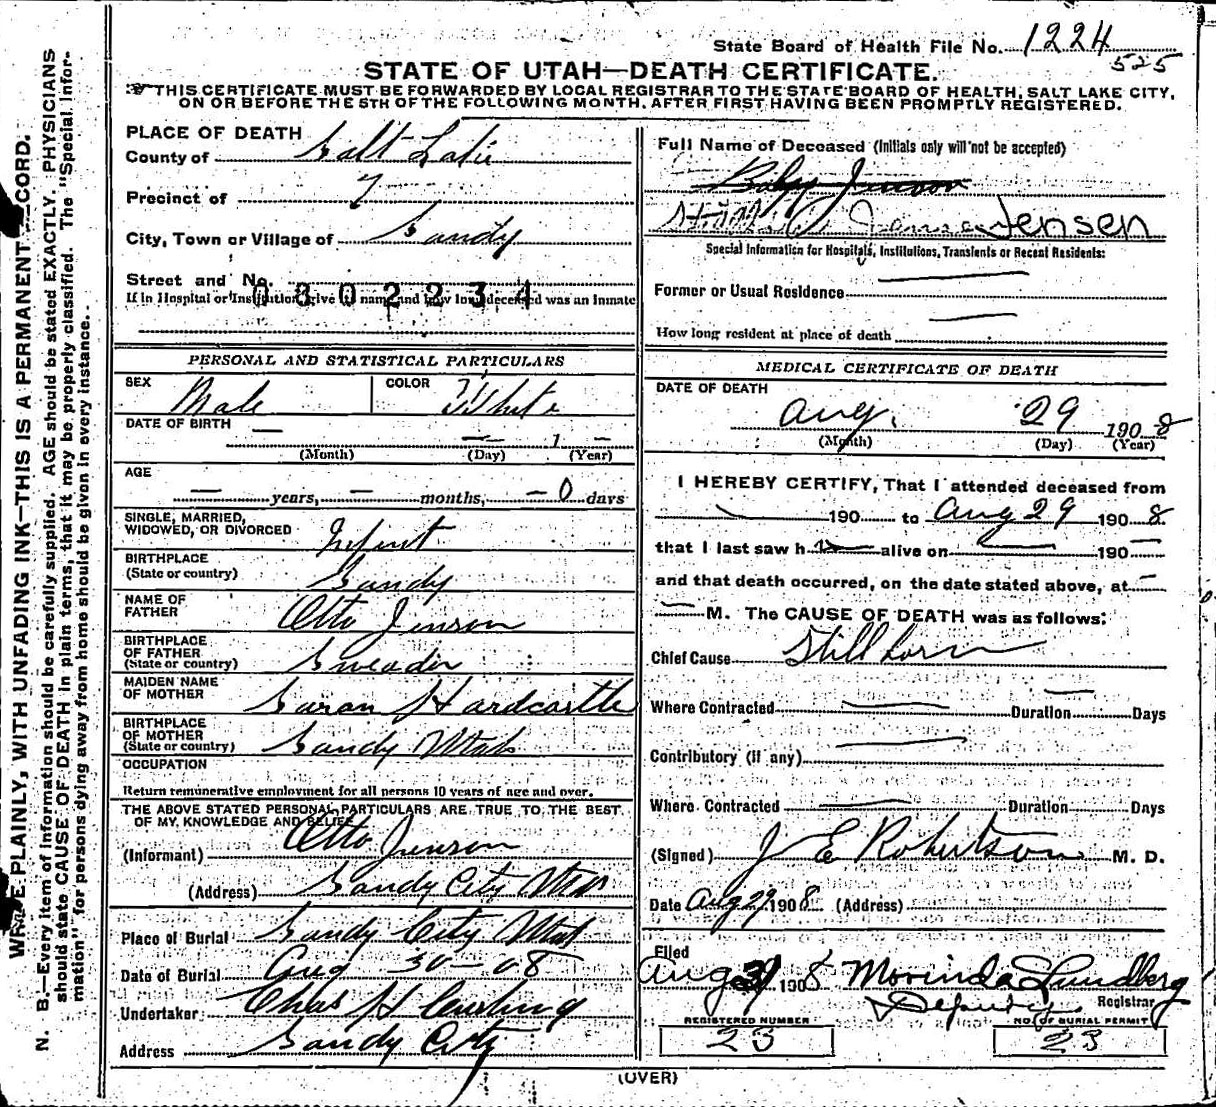 State Board of Health File No. 1224
525
STATE OF UTAH—DEATH CERTIFICATE.
THIS CERTIFICATE MUST BE FORWARDED BY LOCAL REGISTRAR TO THE STATE BOARD OF HEALTH, SALT LAKE CITY,
ON OR BEFORE THE 5TH OF THE FOLLOWING MONTH, AFTER FIRST HAVING BEEN PROMPTLY REGISTERED.
WRITE PLAINLY, WITH UNFADING INK—THIS IS A PERMANENT RECORD.
N. B.—Every item of information should be carefully supplied. AGE should be stated EXACTLY. PHYSICIANS
should state CAUSE OF DEATH in plain terms, that it may be properly classified. The "Special Infor-
mation" for persons dying away from home should be given in every instance.
PLACE OF DEATH
County of Salt Lake
Precinct of 7
City, Town or Village of Sandy
Street and No.
0802234
If in Hospital or Institution, give its name and how long deceased was an inmate
PERSONAL AND STATISTICAL PARTICULARS
SEX Male COLOR White
DATE OF BIRTH — — 1 —
(Month) (Day) (Year)
AGE
— years, — months, — 0 days
SINGLE, MARRIED,
WIDOWED, OR DIVORCED Infant
BIRTHPLACE
(State or country) Sandy
NAME OF
FATHER Otto Jenson
BIRTHPLACE
OF FATHER
(State or country) Sweaden
MAIDEN NAME
OF MOTHER Sarah Hardcastle
BIRTHPLACE
OF MOTHER
(State or country) Sandy Utah
OCCUPATION
Return remunerative employment for all persons 10 years of age and over.
THE ABOVE STATED PERSONAL PARTICULARS ARE TRUE TO THE BEST
OF MY KNOWLEDGE AND BELIEF
(Informant) Otto Jenson
(Address) Sandy City Utah
Place of Burial Sandy City Utah
Date of Burial Aug 30-08
Undertaker Chas H
Address Sandy City
Full Name of Deceased (Initials only will not be accepted)
Baby Jenson
Jensen
Special Information for Hospitals, Institutions, Transients or Recent Residents:
Former or Usual Residence —
How long resident at place of death —
MEDICAL CERTIFICATE OF DEATH
DATE OF DEATH
Aug. 29 1908
(Month) (Day) (Year)
I HEREBY CERTIFY, That I attended deceased from
190 to Aug 29 1908
that I last saw h alive on — 190 —
and that death occurred, on the date stated above, at —
— M. The CAUSE OF DEATH was as follows:
Chief Cause Still born
Where Contracted — Duration — Days
Contributory (if any) —
Where Contracted — Duration Days
(Signed) J E Robertson M. D.
Date Aug 29 1908 (Address)
Filed
Aug 31 1908 Morinda Lundberg
Deputy Registrar
REGISTERED NUMBER
23
NO. OF BURIAL PERMIT
23
(OVER)